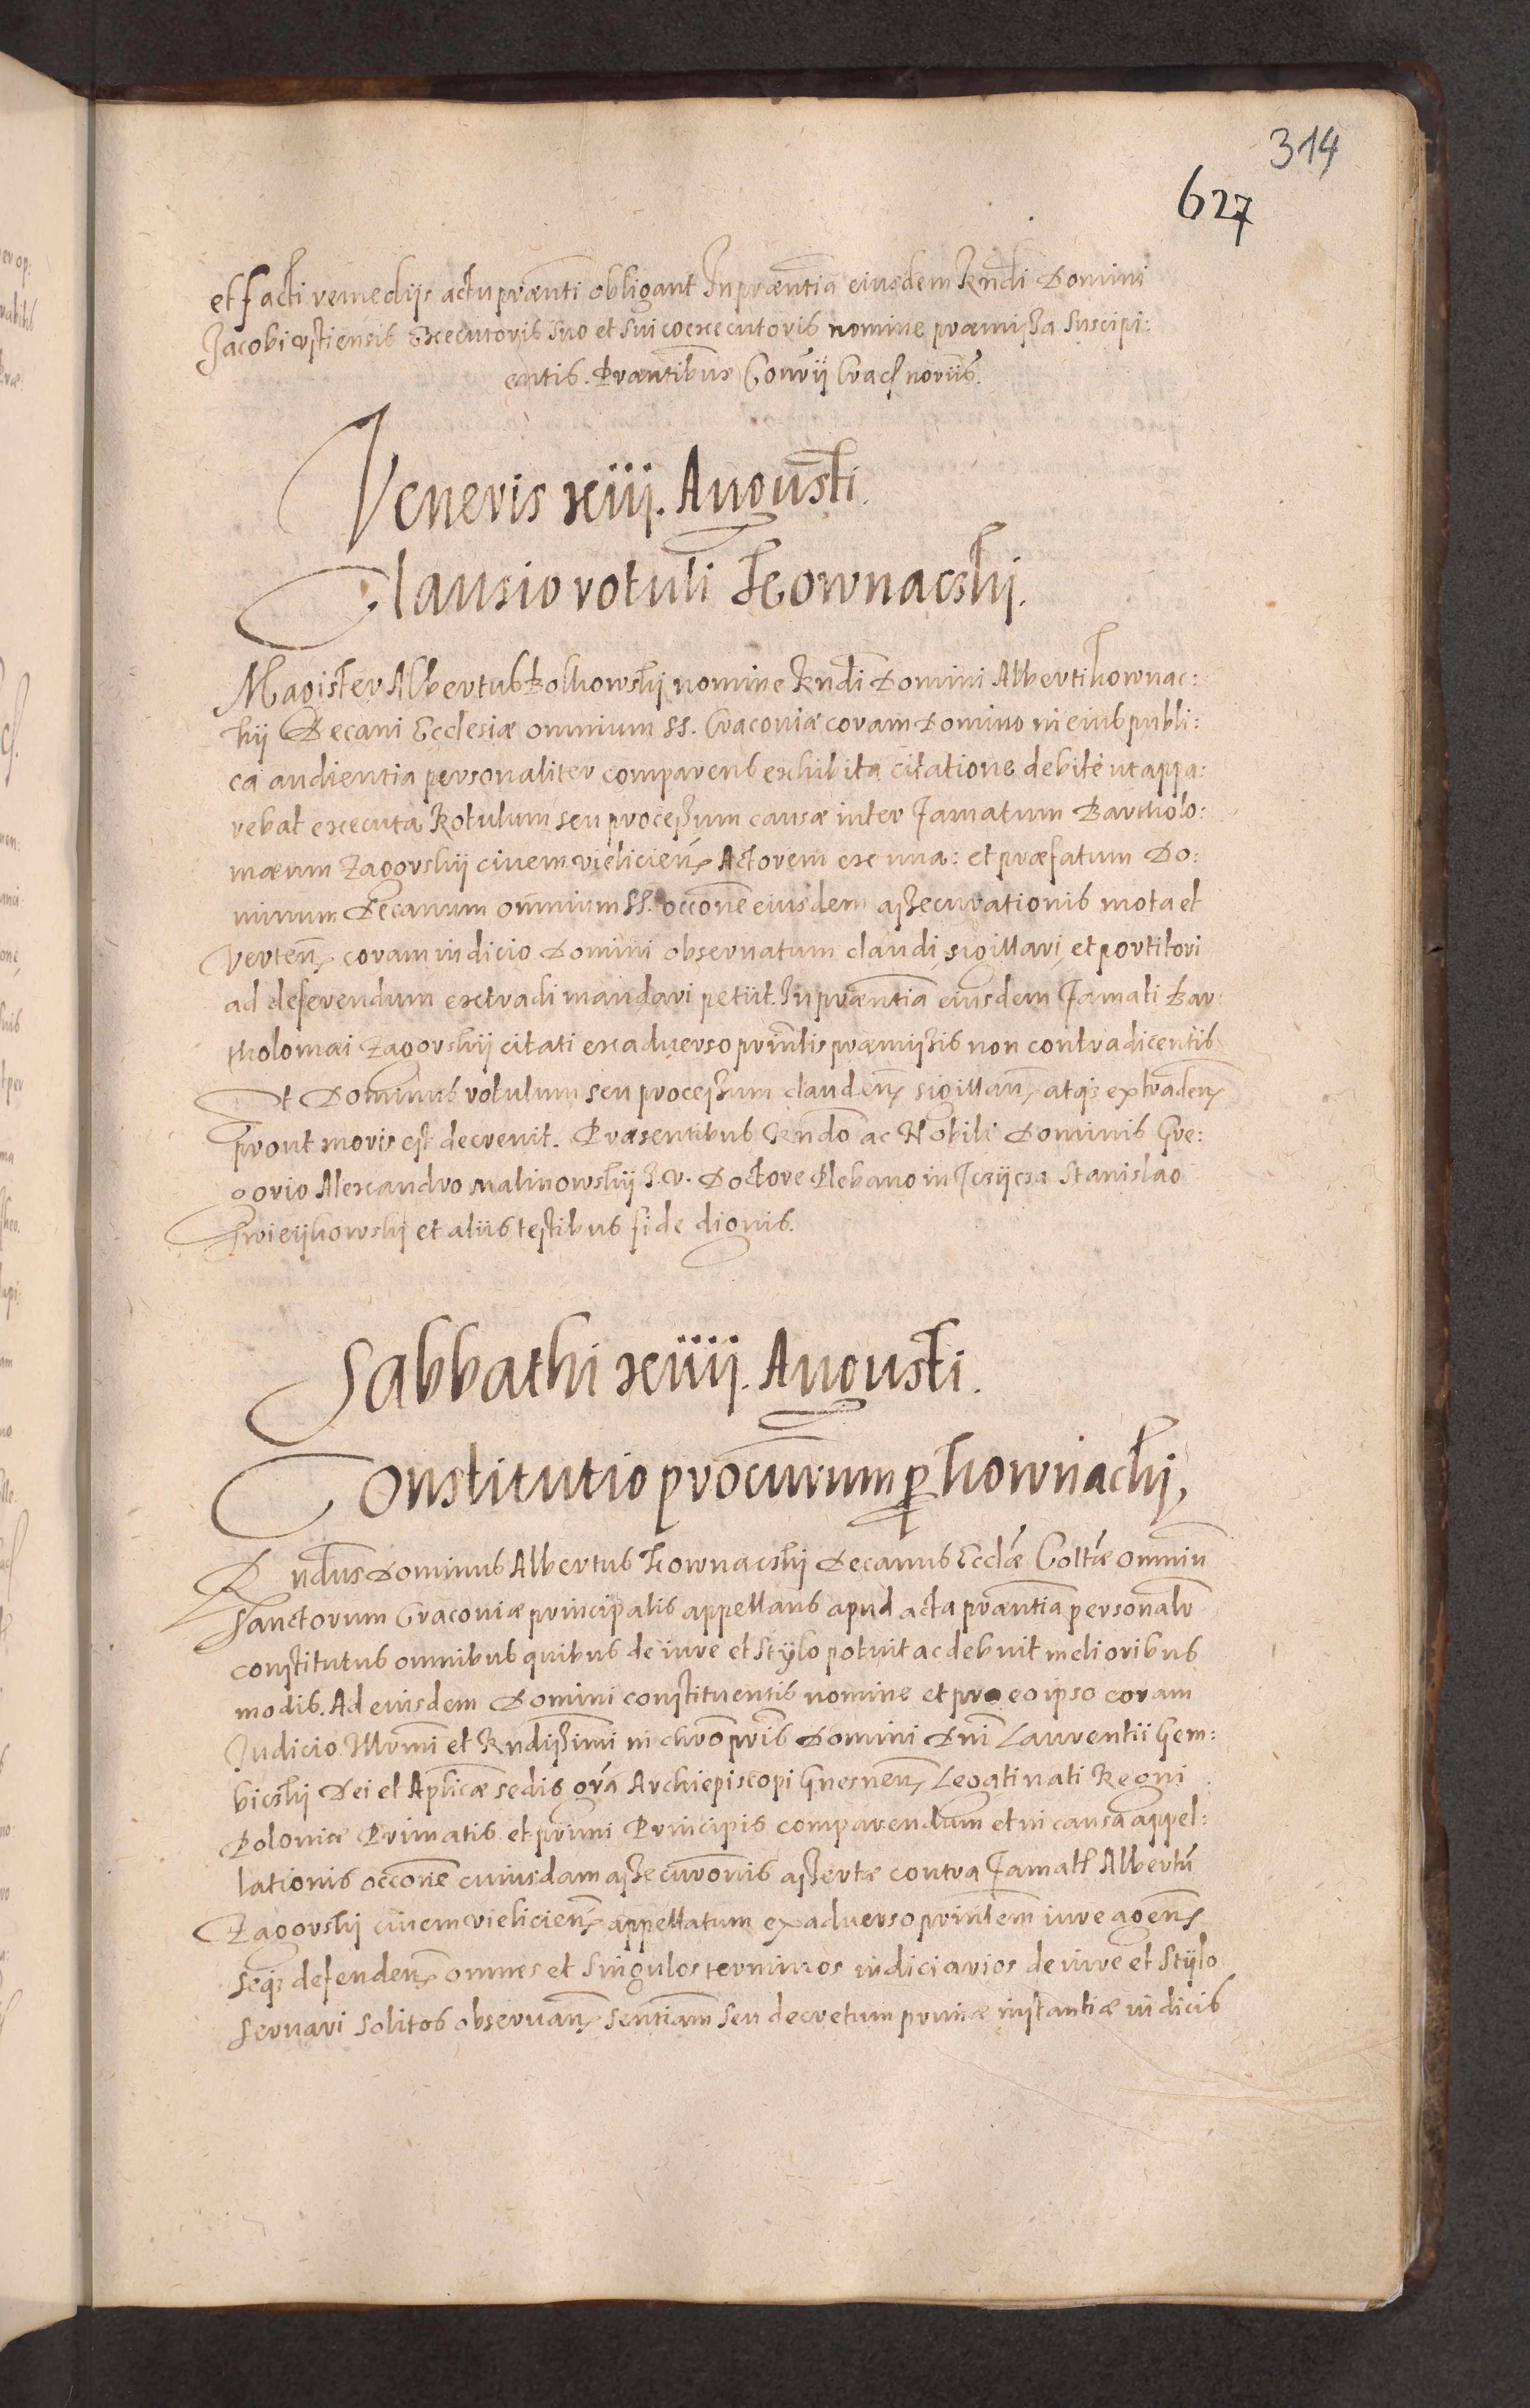 314
627
et facti remediis actu præn̄ti obligant In præn̄tia eiusdem Rn̄di Domini
Jacobi Ustiensis Executoris suo et sui coexecutoris nomine præmissa suscipi:
entis. Præntibus Con̄rii Crac̄ noriis.
Veneris xiii. Augusti.
Clausio rotuli Kownacski.
Magister Albertus Bolkowski nomine Rn̄di Domini Alberti kownac:
kij Decani Ecclesiæ omnium SS. Cracoviæ coram Domino in eius publi:
ca audientia personaliter comparens exhibita citatione debitè ut appa:
rebat executa Rotulum seu processum causæ inter famatum Bartholo:
mæum Zagorskij ciuem vieliciens̄ Actorem ex una: et præfatum Do:
minum Decanum omnium SS. occōne eiusdem assecurationis mota et
verten̄s coram iudicio Domini obseruatum claudi, sigillari, et portitori
ad deferendum extradi mandari petiit. In præn̄tia eiusdem famati Bar:
tholomæi Zagorskij citati ex aduerso prin̄lis præmissis non contradicentis
Et Dominus rotulum seu processum clauden̄ sigillan̄ atq3 extraden̄
prout moris est decrevit. Præsentibus Rn̄do ac Nobili Dominis Gre:
gorio Alexandro Malinowskij J.V. Doctore Plebano in Stanislao
et aliis testibus fide dignis.
Sabbathi xiiii. Augusti.
Constitutio procurūm p kownacki,
Rn̄dus Dominus Albertus Kownacski Decanus Eccl̄æ Coll̄tæ omniū
Sanctorum Cracoviæ principalis appellans apud acta præn̄tia personalr̄
constitutus omnibus quibus de iure et stÿlo potuit ac debuit melioribus
modis. Ad eiusdem Domini constituentis nomine et pro eo ipso coram
Judicio Illr̄mi et Rn̄dissimi in chr̄o pr̄is Domini Dn̄i Laurentii Gem:
bicskij Dei et Aplicæ sedis gr̄a Archiepiscopi Gnesnen̄ Legati nati Regni
Poloniæ Primatis et primi Principis comparendum et in causa appel:
lationis occōne cuiusdam assecurōnis assertæ contra famatū Albertū
Zagorski ciuem vielicien̄ appellatum ex aduerso prin̄lem iure agen̄
seq3 defenden̄ omnes et singulos terminos iudiciarios de iure et stÿlo
seruari solitos obseruan̄ sentīam seu decretum primæ instantiæ iudicis